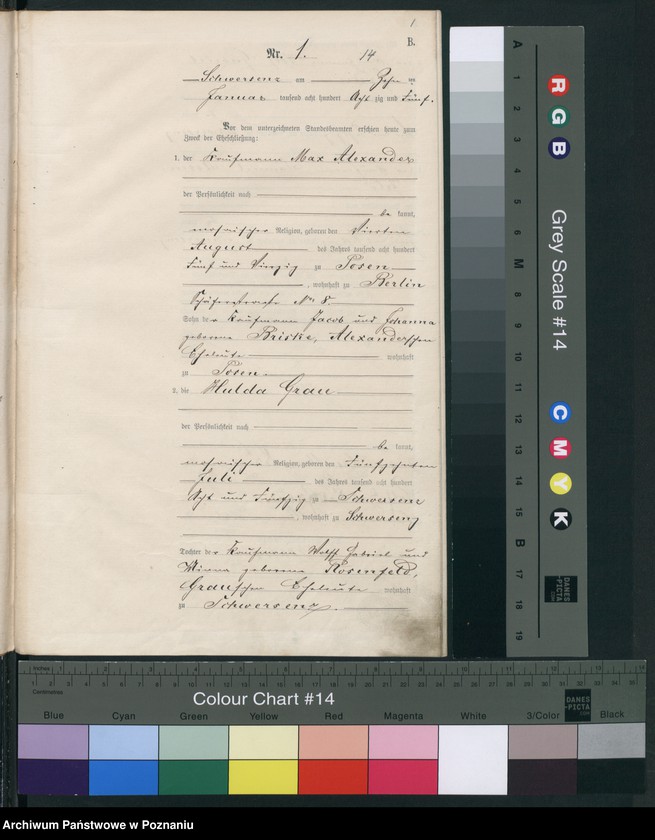 1
B.
Nr. 1.
14
Schwersenz am Zehn ten
Januar tausend acht hundert Acht zig und Fünf.
Vor dem unterzeichneten Standesbeamten erschien heute zum
Zweck der Eheschließung:
1. der Kaufmann Max Alexander
der Persönlichkeit nach
be kannt,
mosaischer Religion, geboren den Vierten
August des Jahres tausend acht hundert
Fünf und Vierzig zu Posen
, wohnhaft zu Berlin
Schäferstrasse No 8
Sohn der Kaufmann Jacob und Johanna
geborene Briske, Alexanderschen
Eheleute wohnhaft
zu Posen.
2. die Hulda Grau
der Persönlichkeit nach
be kannt,
mosaischer Religion, geboren den Fünfzehnten
Juli des Jahres tausend acht hundert
Acht und Fünfzig zu Schwersenz
, wohnhaft zu Schwersenz
Tochter der Kaufmann Wolff Gabriel und
Minna geborene Rosenfeld,
Grauschen Eheleute wohnhaft
zu Schwersenz.
A 1 2 3 4 5 6 M 8 9 10 11 12 13 14 15 B 17 18 19
R G B
Grey Scale #14
C M Y K
DANES
-PICTA
.COM
Inches
Centimetres
Colour Chart #14
DANES
-PICTA
.COM
Blue Cyan Green Yellow Red Magenta White 3/Color Black
Archiwum Państwowe w Poznaniu